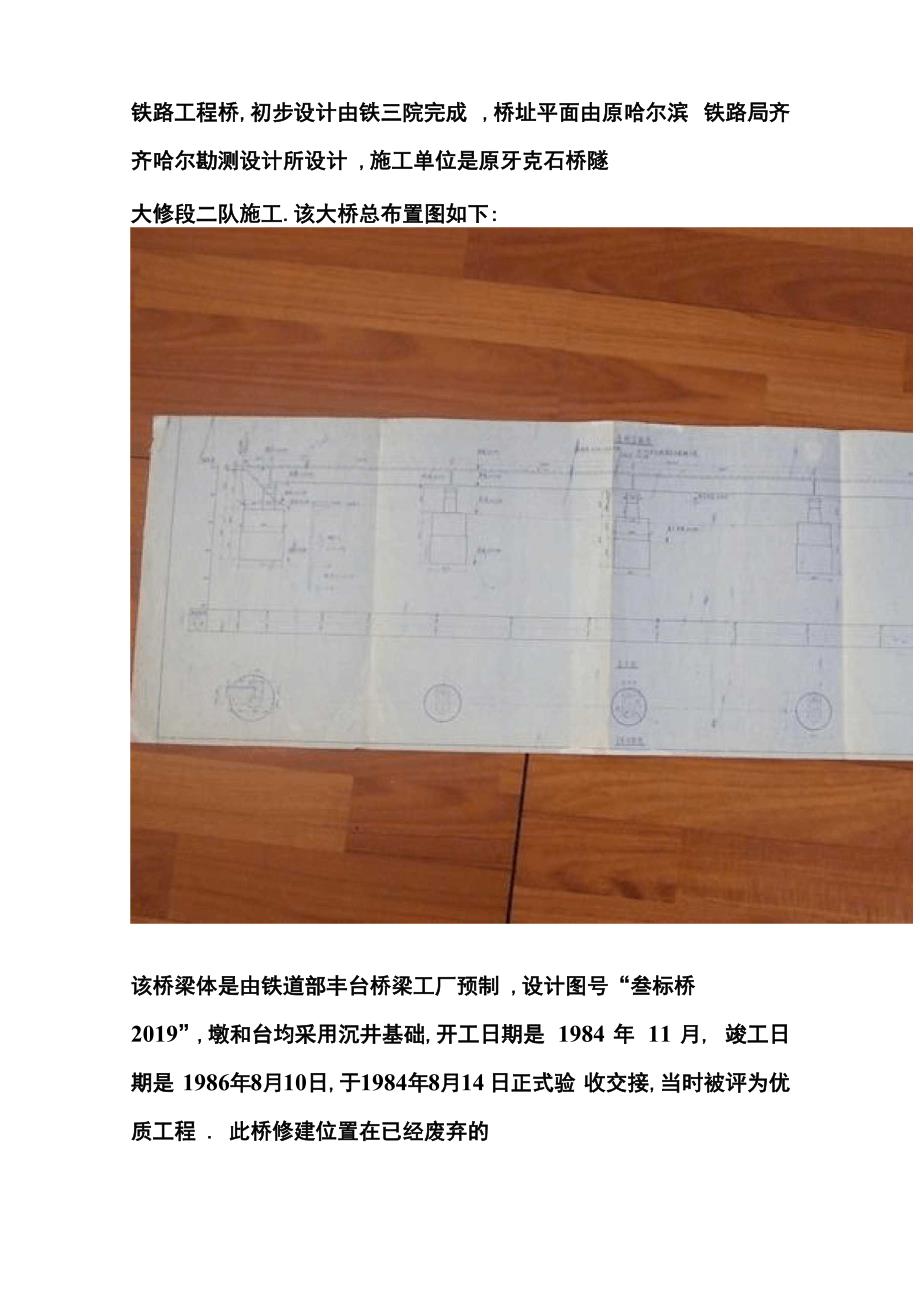 铁路工程桥,初步设计由铁三院完成 ,桥址平面由原哈尔滨 铁路局齐
齐哈尔勘测设计所设计 ,施工单位是原牙克石桥隧
大修段二队施工.该大桥总布置图如下:
该桥梁体是由铁道部丰台桥梁工厂预制 ,设计图号“叁标桥
2019”,墩和台均采用沉井基础,开工日期是 1984 年 11 月, 竣工日
期是 1986年8月10日,于1984年8月14日正式验 收交接,当时被评为优
质工程 . 此桥修建位置在已经废弃的